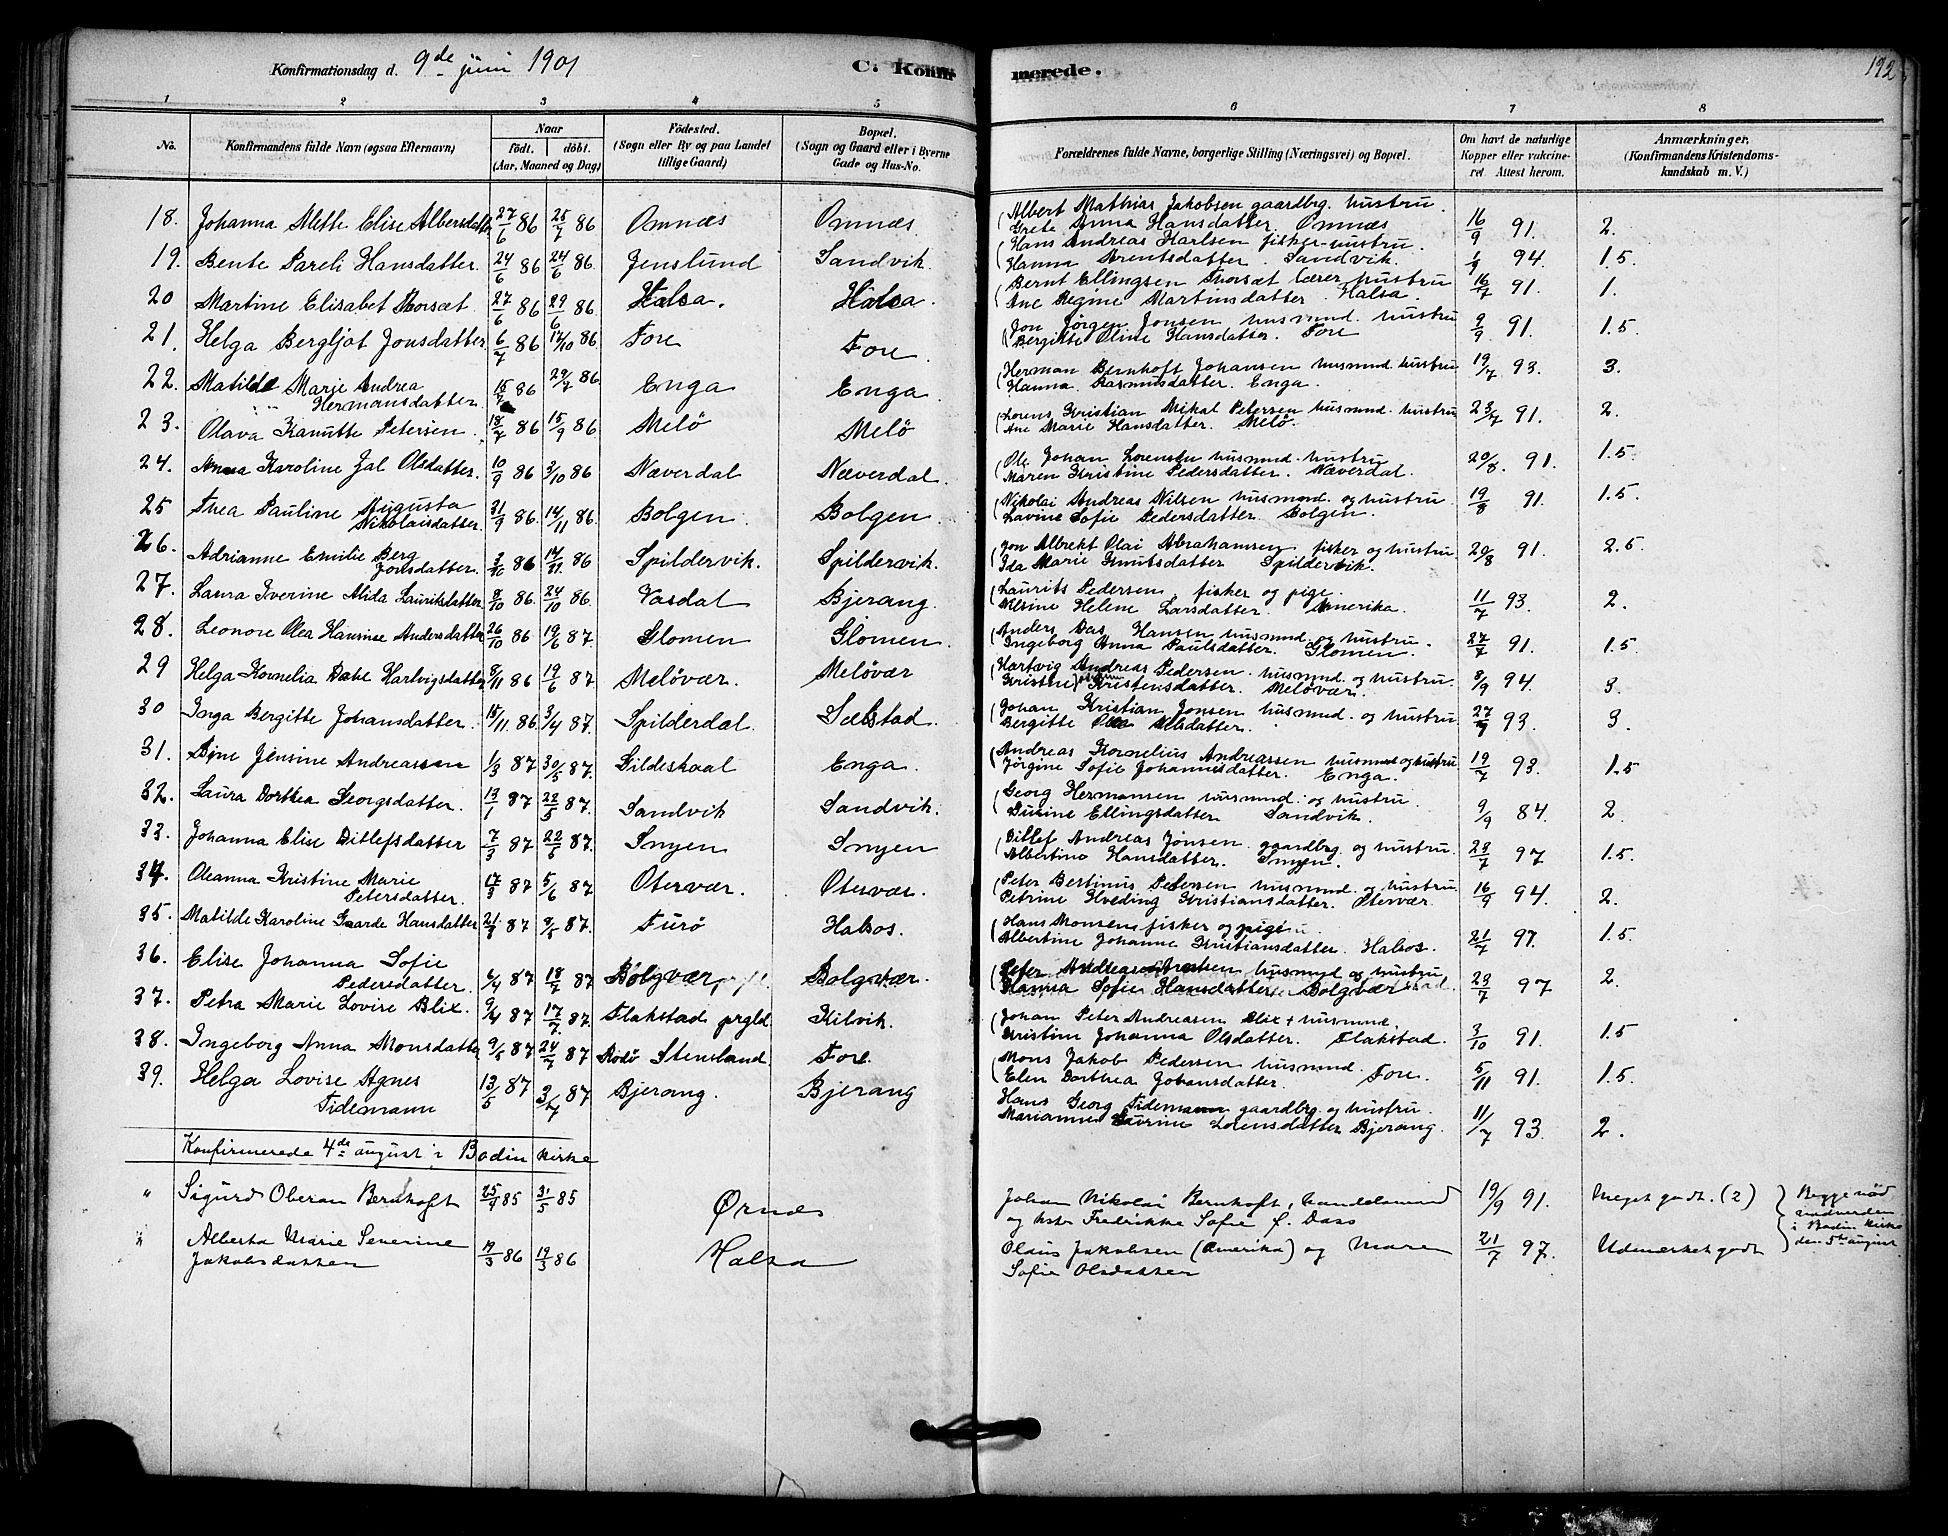 Konfirmationsdag d. 9de juni 1901 C. Konfirmerede. 192
1 2 3 4 5 6 7 8
No. Konfirmandens fulde Navn (ogsaa Efternavn) Naar født. døbt. (Aar, Maaned og Dag) Fødested. (Sogn eller By og paa Landet tillige Gaard) Bopæl. (Sogn og Gaard eller i Byerne Gade og Hus-No. Forældrenes fulde Navne, borgerlige Stilling (Næringsvei) og Bopæl. Om havt de naturlige Kopper eller vakcineret. Attest herom. Anmærkninger, (Konfirmandens Kristendomskundskab m. V.)
18. Johanna Mette Elise Albersdatter 27/6 86 25/7 86 Omnæs Omnæs. Albert Mathias Jakobsen gaardbrg. hustru. Grete Anna Hansdatter. Omnæs 16/9 91. 2.
19. Bente Pareli Hansdatter. 24/6 86 24/6 86. Jenslund Sandvik. Hans Andreas Karlsen fisker - hustru. Hanna Arentsdatter. Sandvik. 1/9 94. 1.5.
20 Martine Elisabet Thorsæt 27/6 86 29/6 86. Halsa. Halsa. Bernt Ellingsen Thorsæt lærer hustru Ane Regine Martinsdatter. Halsa. 16/7 91. 1.
21. Helga Bergljot Jonsdatter 6/7 86 17/10 86. Fore Fore. Jon Jørgen Jonsen husmnd. hustru Bergitte Oline Hansdatter. Fore 9/9 91. 1.5
22. Matilde Marie Andrea Hermansdatter 15/7 86 29/7 86. Enga Enga. Herman Bernhoft Johansen husmnd. hustru Hanna Rasmusdatter. Enga. 19/7 93. 3.
23. Olava Kanutte Petersen 18/7 86 15/9 86 Melö Melö Lorens Kristian Mikal Petersen husmnd. hustru Ane Marie Hansdatter. Melö. 23/7 91. 2.
24. Anna Karoline Jal Olsdatter. 10/9 86 3/10 86 Næverdal Næverdal. Ole Johan Lorentsen husmnd. hustru Maren Kristine Pedersdatter. Næverdal. 20/8. 91. 1.5.
25 Thea Pauline Augusta Nikolaisdatter. 21/9 86. 14/11 86. Bolgen. Bolgen. Nikolai Andreas Nilsen husmnd. og hustru. Lavine Sofie Pedersdatter. Bolgen. 19/8 91. 1.5
26. Adrianne Emilie Berg Jonsdatter. 3/10 86 14/11 86 Spildervik. Spildervik. Jon Albrekt Olai Abrahamsen. fisker og hustru Ida Marie Knutsdatter Spildervik. 20/8 91. 2.5.
27. Laura Iverine Alida Lauritsdatter 8/10 86. 24/10 86. Vasdal Bjerang. Laurits Pedersen, fisker og pige. Alsine Helene Larsdatter. Amerika. 11/7 93. 2.
28. Leonore Olea Hansine Andersdatter 26/10 86 19/6 87. Glomen Glomen. Anders Das Hansen husmnd. og hustru. Ingeborg Anna Paulsdatter. Glomen. 27/7 91. 1.5.
29 Helga Kornelia Dake Hartvigsdatter 8/11 86 19/6 87 Melövær. Melövær Hartvig Andreas Pedersen. husmnd. og hustru. Kristine Kristensdatter. Melövær. 8/9 94. 3.
30 Inga Bergitte Johansdatter. 15/11. 86 3/4 87. Spilderdal. Sælstad. Johan Kristian Jonsen husmnd. og hustru Bergitte Olea Nilsdatter. 27/9 93. 3.
31. Bine Jensine Andreassen 1/3 87 30/5 87. Gildeskaal Enga. Andreas Kornelius Andreassen husmnd og hustru Jörgine Sofie Johannisdatter. Enga. 19/7 93. 1.5
32. Laura Dorthea Georgsdatter. 13/1 87 22/5 87. Sandvik Sandvik. Georg Hermansen husmnd. og hustru. Dusine Ellingsdatter Sandvik. 9/9 84. 2
33. Johanna Elise Ditlefsdatter 7/3 87 22/5 87. Smyen Smyen Ditlef Andreas Jonsen. gaardbrg. og hustru. Albertine Hansdatter. Smyen. 23/7 97 1.5.
34. Oleanna Kristine Marie Petersdatter. 17/3 87 5/6 87 Otervær. Otervær. Peter Bertinus Petersen husmnd. og hustru Petrine Kveding Kristiansdatter. Otervær. 16/9 94. 2.
35. Matilde Karoline Gaarde Hansdatter 21/3 87 8/5 87. Furö Halsos. Hans Monsen fisker og pige Albertine Johanne Kristiansdatter. Halsos. 21/7 97. 1.5.
36. Elise Johanna Sofie Pedersdatter. 6/4 87 18/7 87 Bolgvær Bolgvær. Peter Andreas husmnd og hustru Hanna Sofie Hansdatter Bolgvær 23/7 97 2.
37. Petra Marie Lovise Blix. 9/4 87 17/7 87. Flakstad prgld. Kilvik. Johan Peter Andreasen Blix + husmnd. Kristine Johanna Olsdatter. Flakstad. 3/10 91. 1.5
38. Ingeborg Anna Monsdatter 9/5 87 24/7 87 Rödö Stensland. Fore. Mons Jakob Pedersen husmnd. Elen Dorthea Johansdatter. Fore. 5/11 91. 1.5.
39. Helga Lovise Agnes Tidemann 13/5 87 3/7 87 Bjerang. Bjerang Hans Georg Tidemann gaardbrg. og hustru. Marianne Laurine Lorensdatter Bjerang. 11/7 93. 2.
Konfirmerede 4de august i Bodin kirke
" Sigurd Oberan Bernhoft 25/4 85 31/5 85 Ørnes Johan Nikolai Bernhoft, handelsmand og hstr Fredrikke Sofie f. Dass 19/9 91. Meget godt. (2)
" Alberta Marie Severine Jakobsdatter 19/3 86 19/3 86 Halsa Olaus Jakobsen (Amerika) og Maren Sofie Olsdatter 21/7 97. Udmerket godt
Begge nöd nadverden i Bodin kirke den 5te august